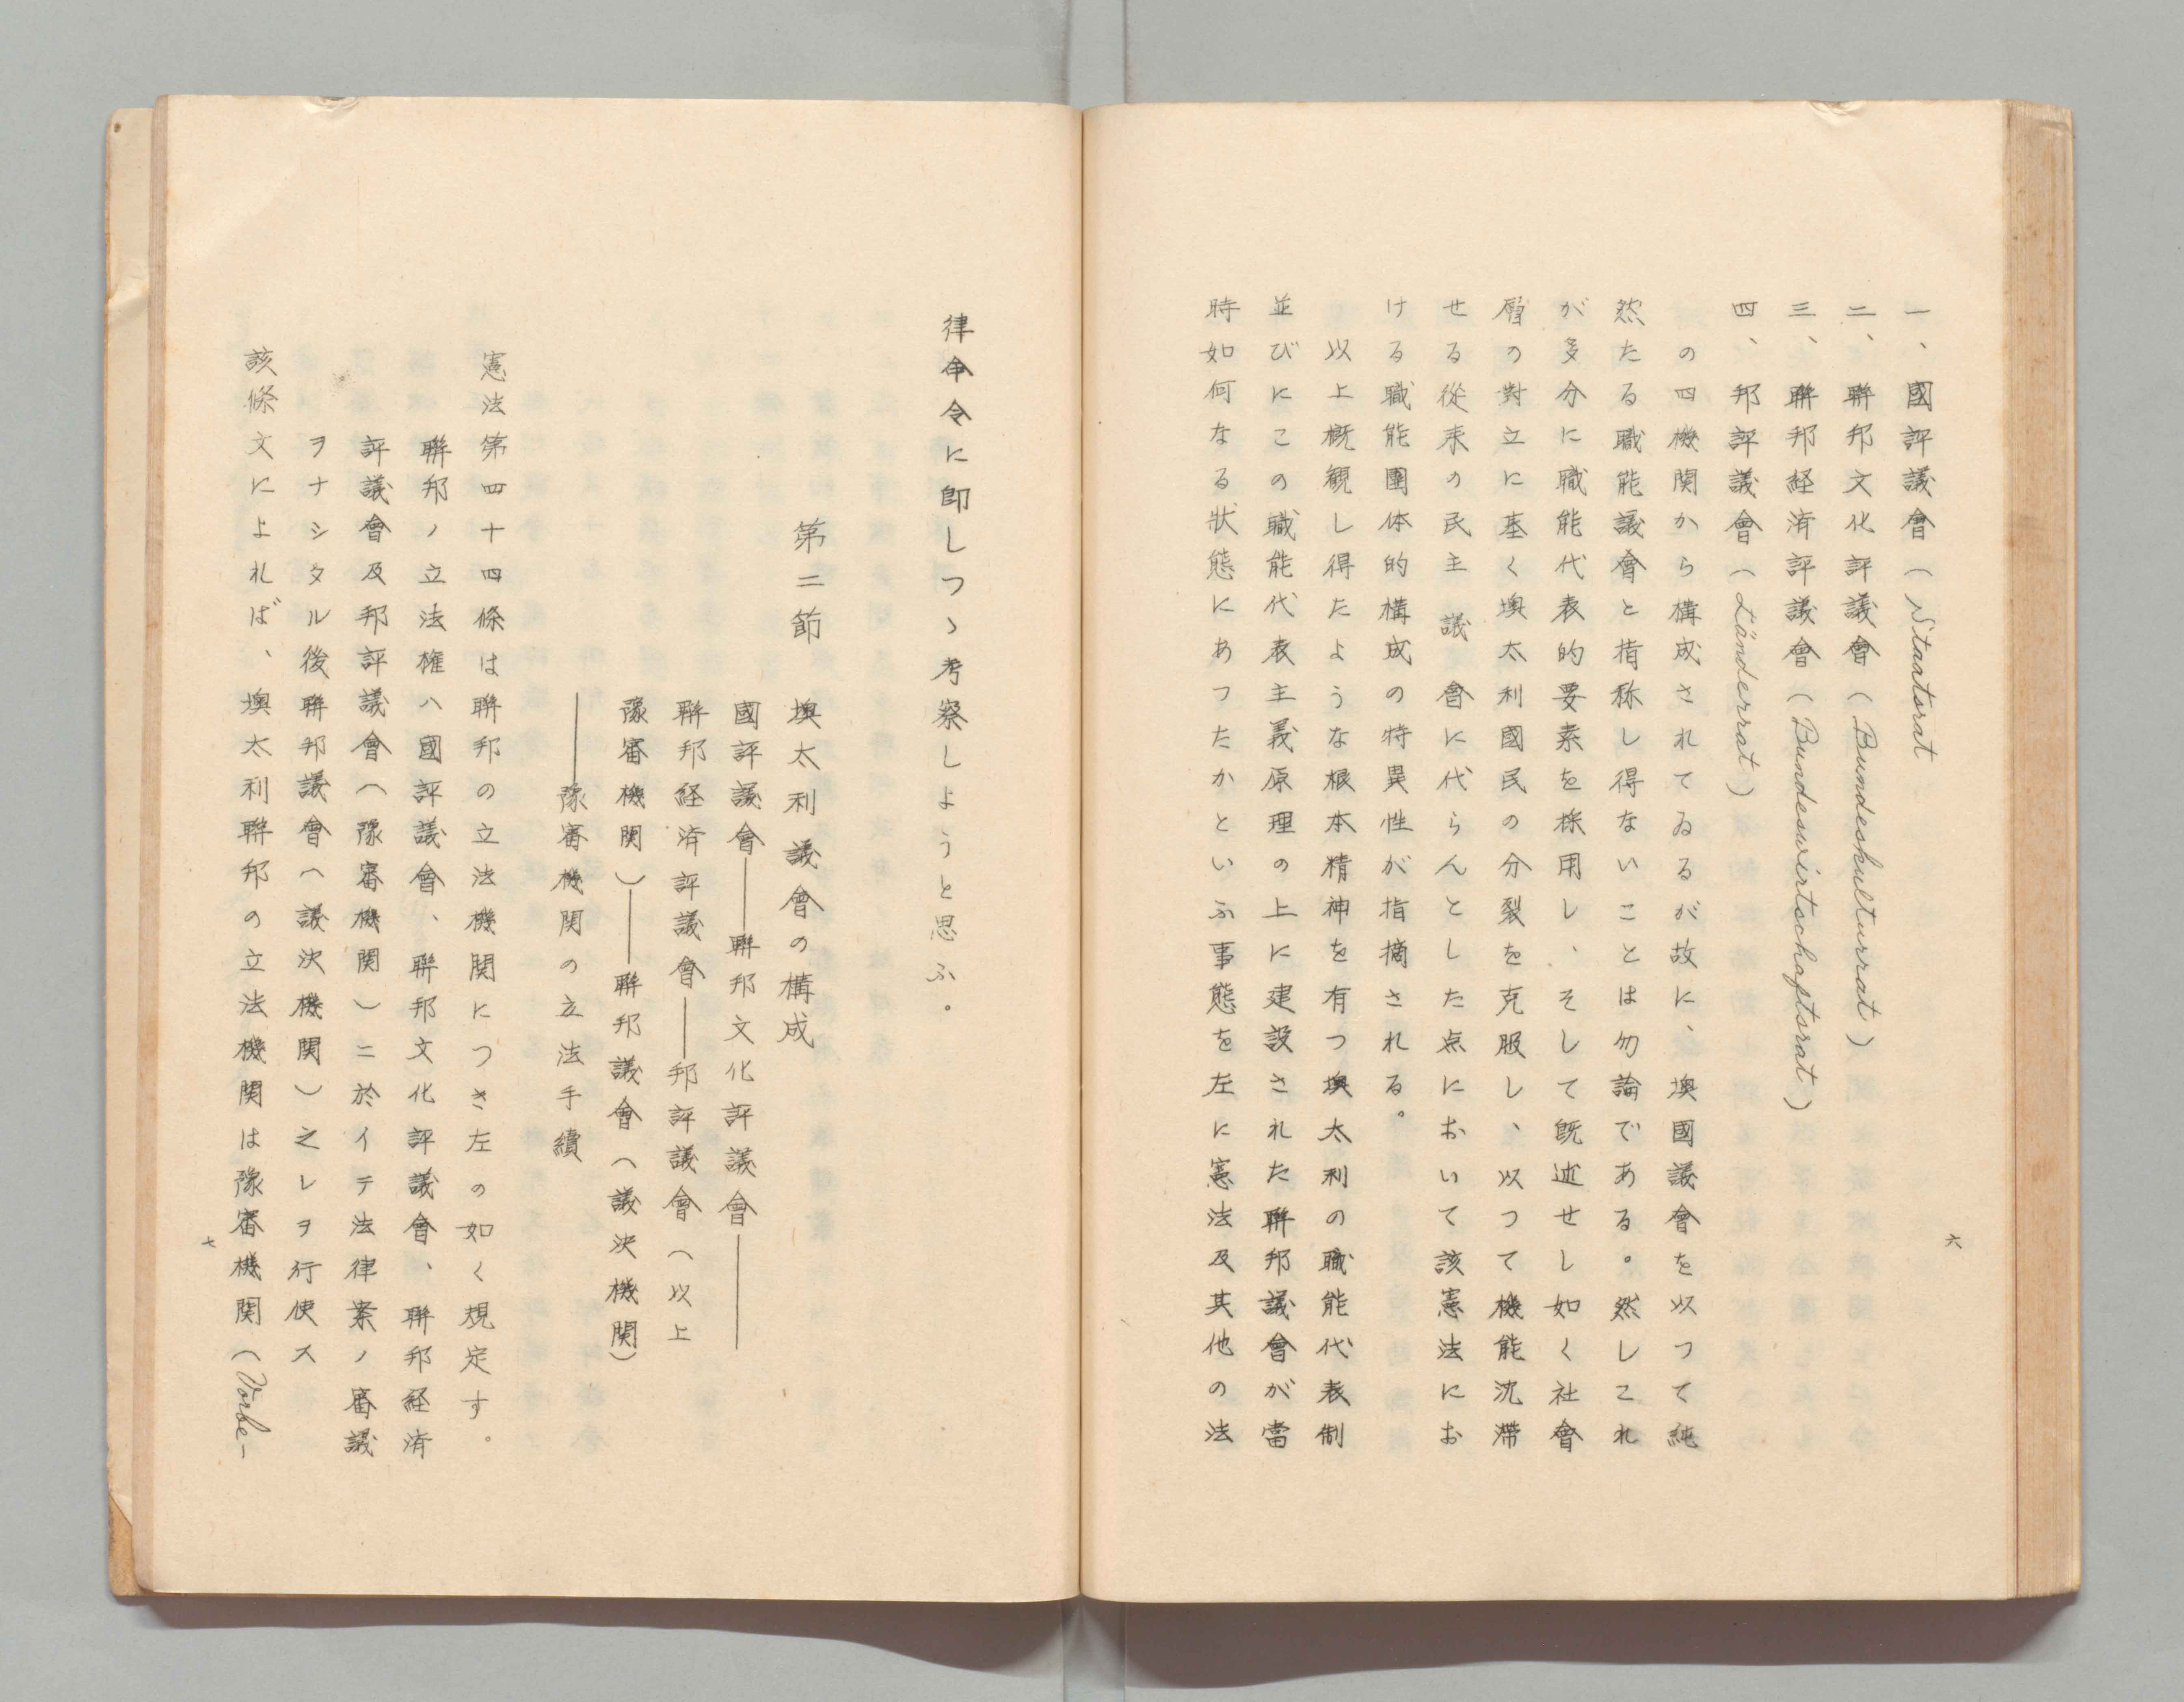 一、國評議會（Staatsrat
二、聯邦文化評議會（Bundeskulturrat）
三、聯邦経済評議會（Bundeswirtschaftsrat）
四、邦評議會（Länderrat）
の四機関から構成されてゐるが故に、墺國議會を以つて純
然たる職能議會と指称し得ないことは勿論である。然しこれ
が多分に職能代表的要素を採用し、そして既述せし如く社會
層の對立に基く墺太利國民の分裂を克服し、以つて機能沈滞
せる從来の民主議會に代らんとした点において該憲法にお
ける職能團体的構成の特異性が指摘される。
以上概観し得たような根本精神を有つ墺太利の職能代表制
並びにこの職能代表主義原理の上に建設された聯邦議會が當
時如何なる狀態にあつたかといふ事態を左に憲法及其他の法
六
律命令に即しつゝ考察しようと思ふ。
第二節　墺太利議會の構成
國評議會――聯邦文化評議會――
聯邦経済評議會――邦評議會（以上
豫審機関）――聯邦議會（議決機関）
――豫審機関の立法手續
憲法第四十四條は聯邦の立法機関につき左の如く規定す。
聯邦ノ立法権ハ國評議會、聯邦文化評議會、聯邦経済
評議會及邦評議會（豫審機関）ニ於イテ法律案ノ審議
ヲナシタル後聯邦議會（議決機関）之レヲ行使ス
該條文によれば、墺太利聯邦の立法機関は豫審機関（Vorbe-
七